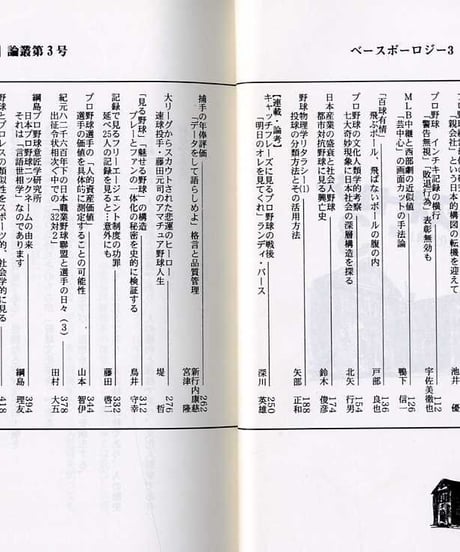 ベースボーロジー3
親会社」という日本的構図の転機を迎えて
池井 優
プロ野球・インチキ記録の横行
「警告無視」「敗退行為」表彰無効も
宇佐美徹也 112
MLB中継と西部劇の近似値
「芸中心」の画面カットの手法論
鴨下 信一 126
「百球有情」
飛ぶボール、飛ばないボールの腹の内
戸部 良也 136
プロ野球の文化人類学的考察
七大奇の現象に日本社会の深層構造を探る
北矢 行男 154
日本産業の盛衰と社会人野球
都市対抗野球に見る興亡史
鈴木 俊彦 174
野球物理学リタラシー(1)
投球の分類方法とその活用方法
矢部 正和 188
【連載・論考】
キャッチフレーズに見るプロ野球の戦後
「明日のオレを見てくれ」ランディ・バース
深川 英雄 250
論叢第3号
捕手の年俸評価
「データをして語らしめよ」格言と品質管理
新行内康慈
宮津 隆 262
大リーグからスカウトされた悲運のヒーロー
速球投手・藤田元司のアマチュア野球人生
堤 哲 276
「見る野球」「魅せる野球」の構造
プレーとファンの一体化の秘密を史的に検証する
鳥井 守幸 312
記録で見るフリーエージェント制度の功罪
延べ25人の記録を見ると…意外にも
藤田 啓二 332
プロ野球選手の「人的資産価値」
選手の価値を具体的に測定することの可能性
山本 智伊 344
紀元八二千六百年下の日本職業野球聯盟と選手の日々(3)
出征から状相次ぐ中での「一32対2」
田村 大五 378
綱島プロ野球意匠学研究所
日本プロ野球チームネームの由来
それは、"言語世相学"なのであります
綱島 理友 384
野球とプロレスの類似性をスポーツ的、社会学的に見る
418